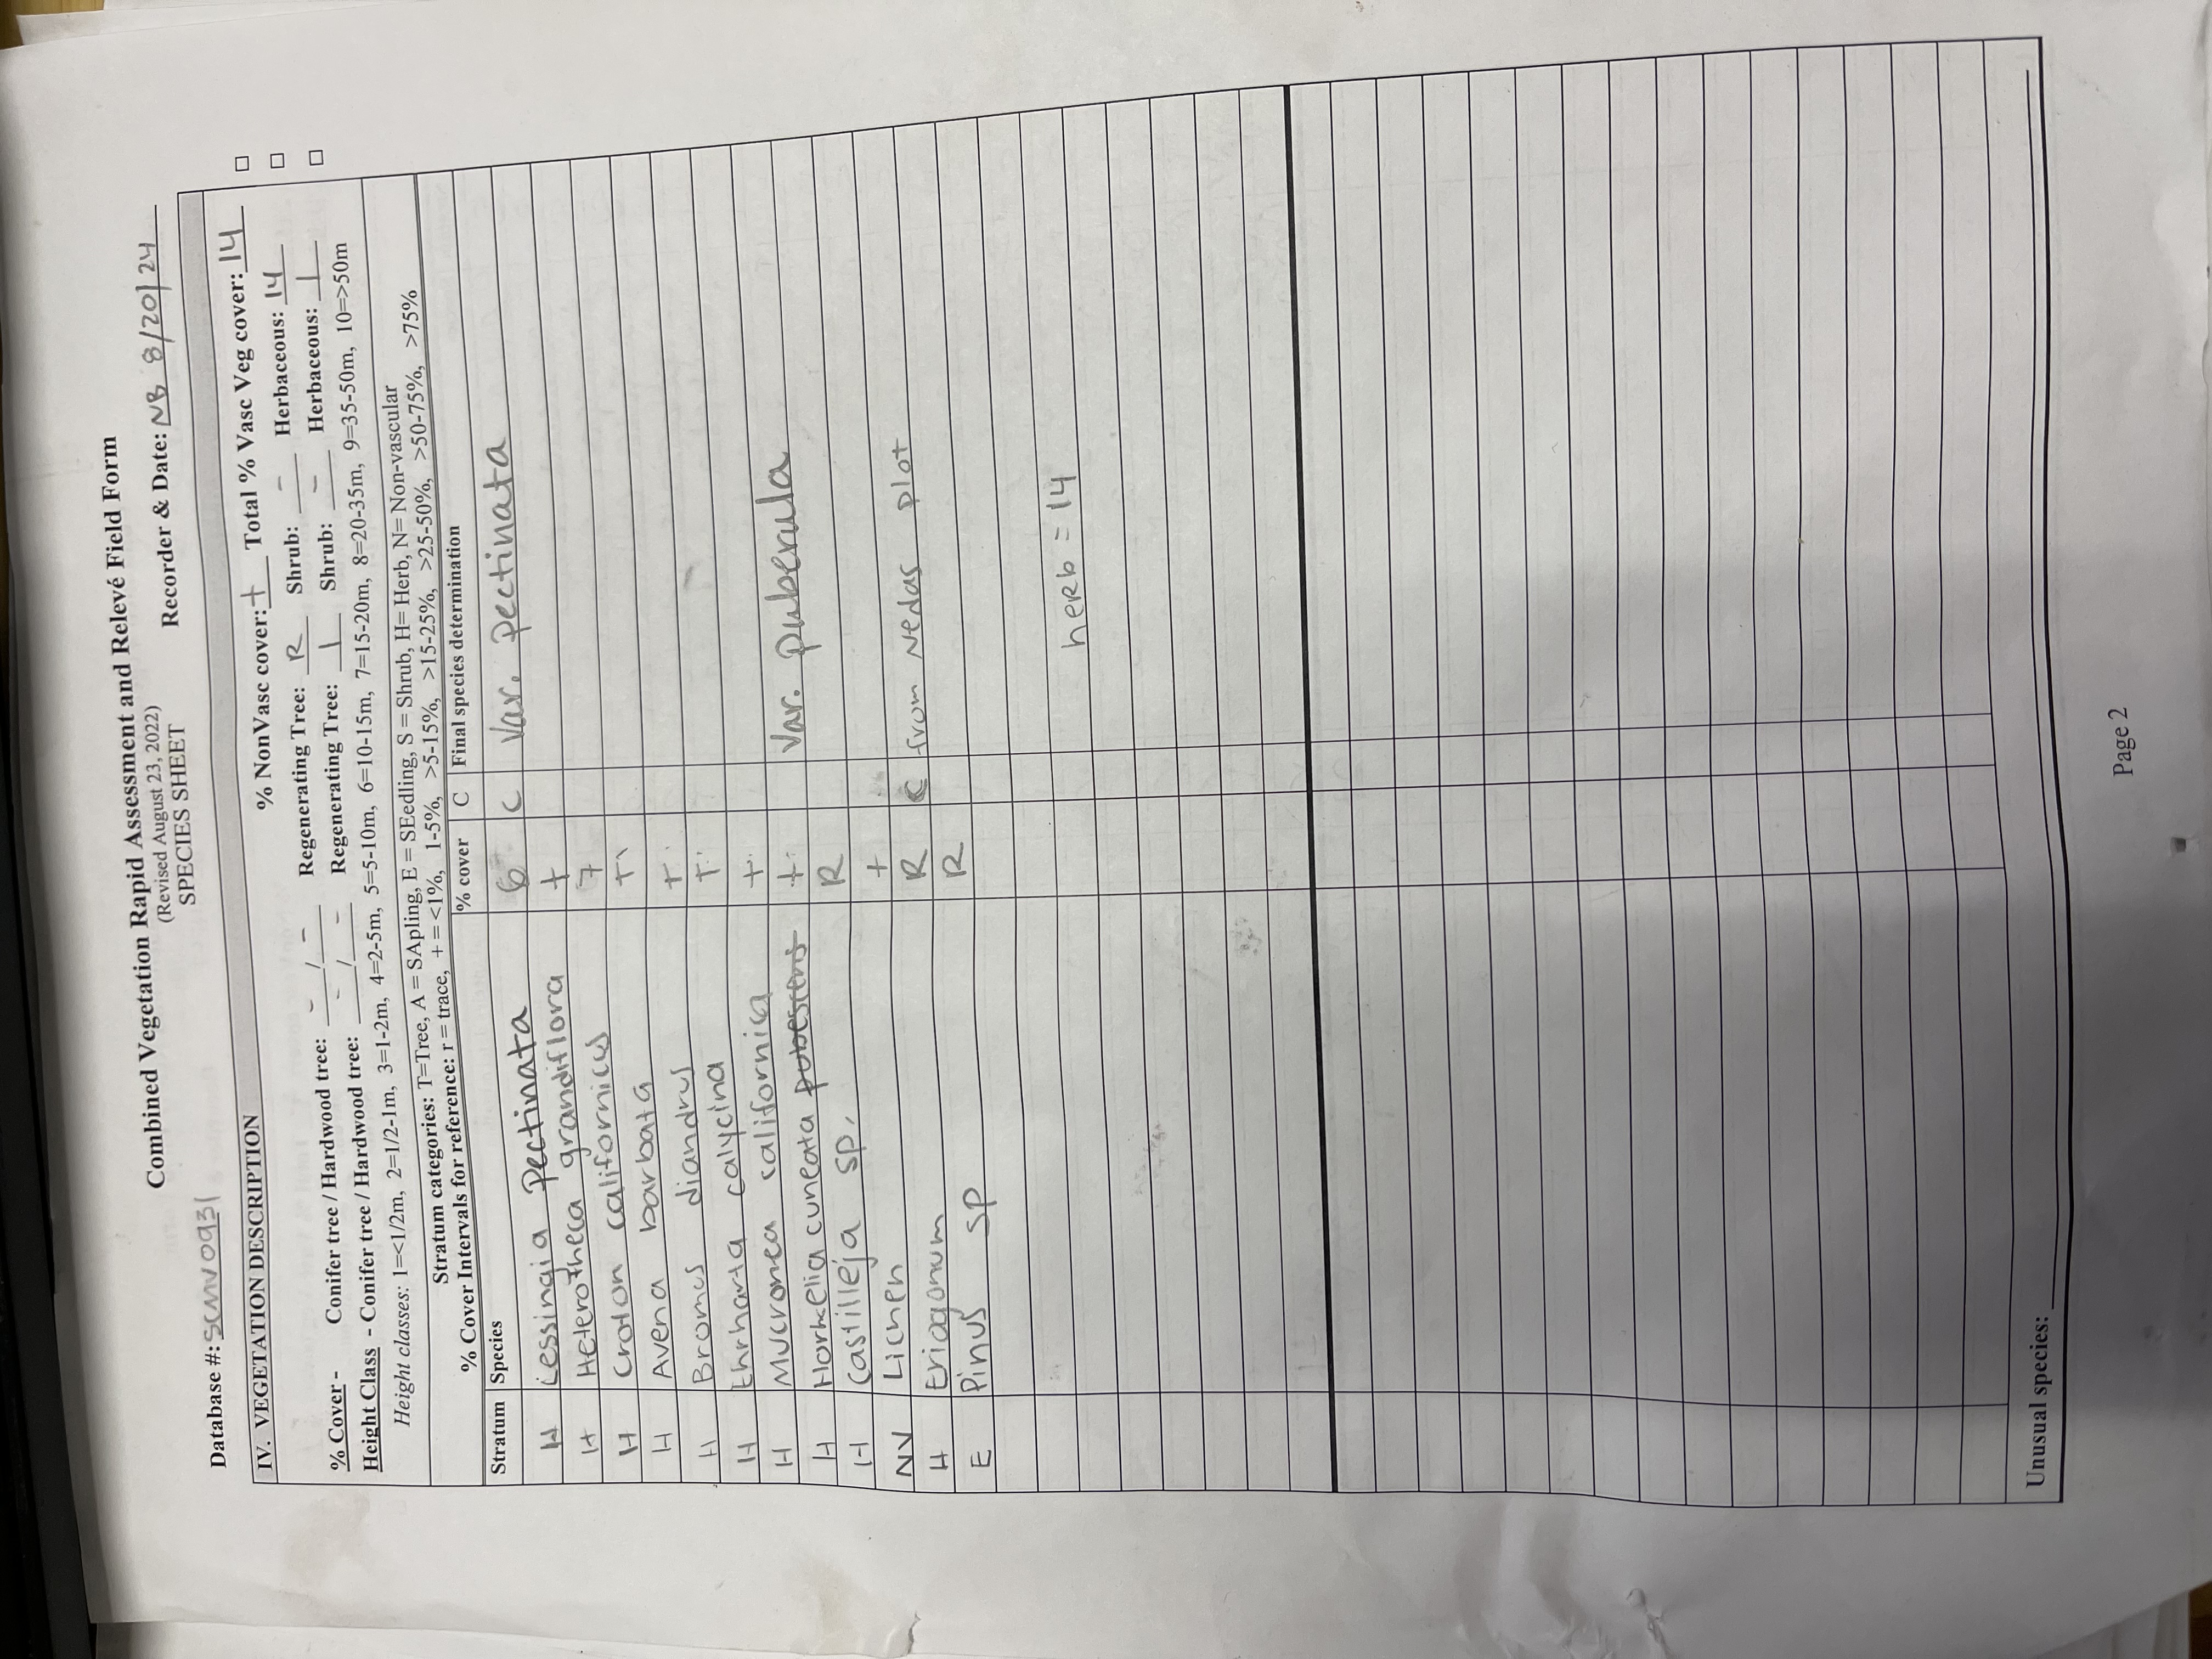 Combined Vegetation Rapid Assessment and Relevé Field Form
(Revised August 23, 2022)
SPECIES SHEET
Database #: SCMV0931 Recorder & Date: NB 8/20/24
IV. VEGETATION DESCRIPTION
% NonVasc cover: + Total % Vasc Veg cover: 14 □
% Cover - Conifer tree / Hardwood tree: - / - Regenerating Tree: R Shrub: - Herbaceous: 14 □
Height Class - Conifer tree / Hardwood tree: - / - Regenerating Tree: 1 Shrub: - Herbaceous: 1 □
Height classes: 1=<1/2m, 2=1/2-1m, 3=1-2m, 4=2-5m, 5=5-10m, 6=10-15m, 7=15-20m, 8=20-35m, 9=35-50m, 10=>50m
Stratum categories: T=Tree, A = SApling, E = SEedling, S = Shrub, H= Herb, N= Non-vascular
% Cover Intervals for reference: r = trace, + = <1%, 1-5%, >5-15%, >15-25%, >25-50%, >50-75%, >75%
Stratum Species % cover C Final species determination
H Lessingia pectinata 6 C Var. pectinata
H Heterotheca grandiflora +
H Croton californicus 7
H Avena barbata +
H Bromus diandrus +
H Ehrharta calycina +
H Mucronea californica +
H Horkelia cuneata pubescens + Var. puberula
H Castilleja sp. R
NV Lichen +
H Eriogonum R C from Nedas plot
E Pinus sp R
herb = 14
Unusual species:
Page 2